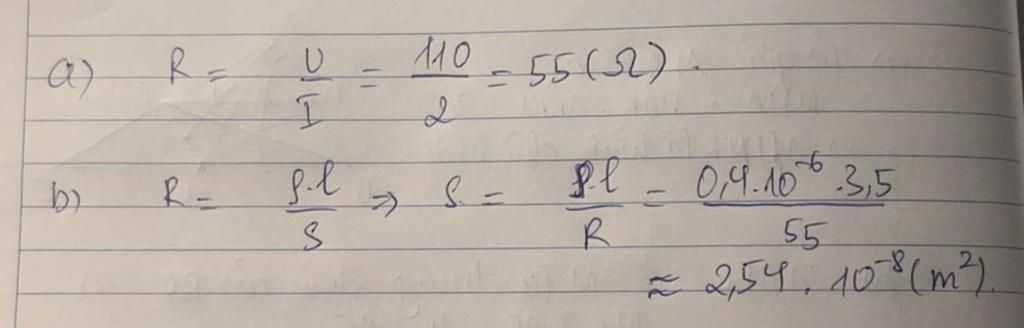 a) R = U/I = 110/2 = 55 (Ω).
b) R = ρ.l/S ⇒ S = ρ.l/R = 0,4.10⁻⁶.3,5/55
≈ 2,54.10⁻⁸ (m²).